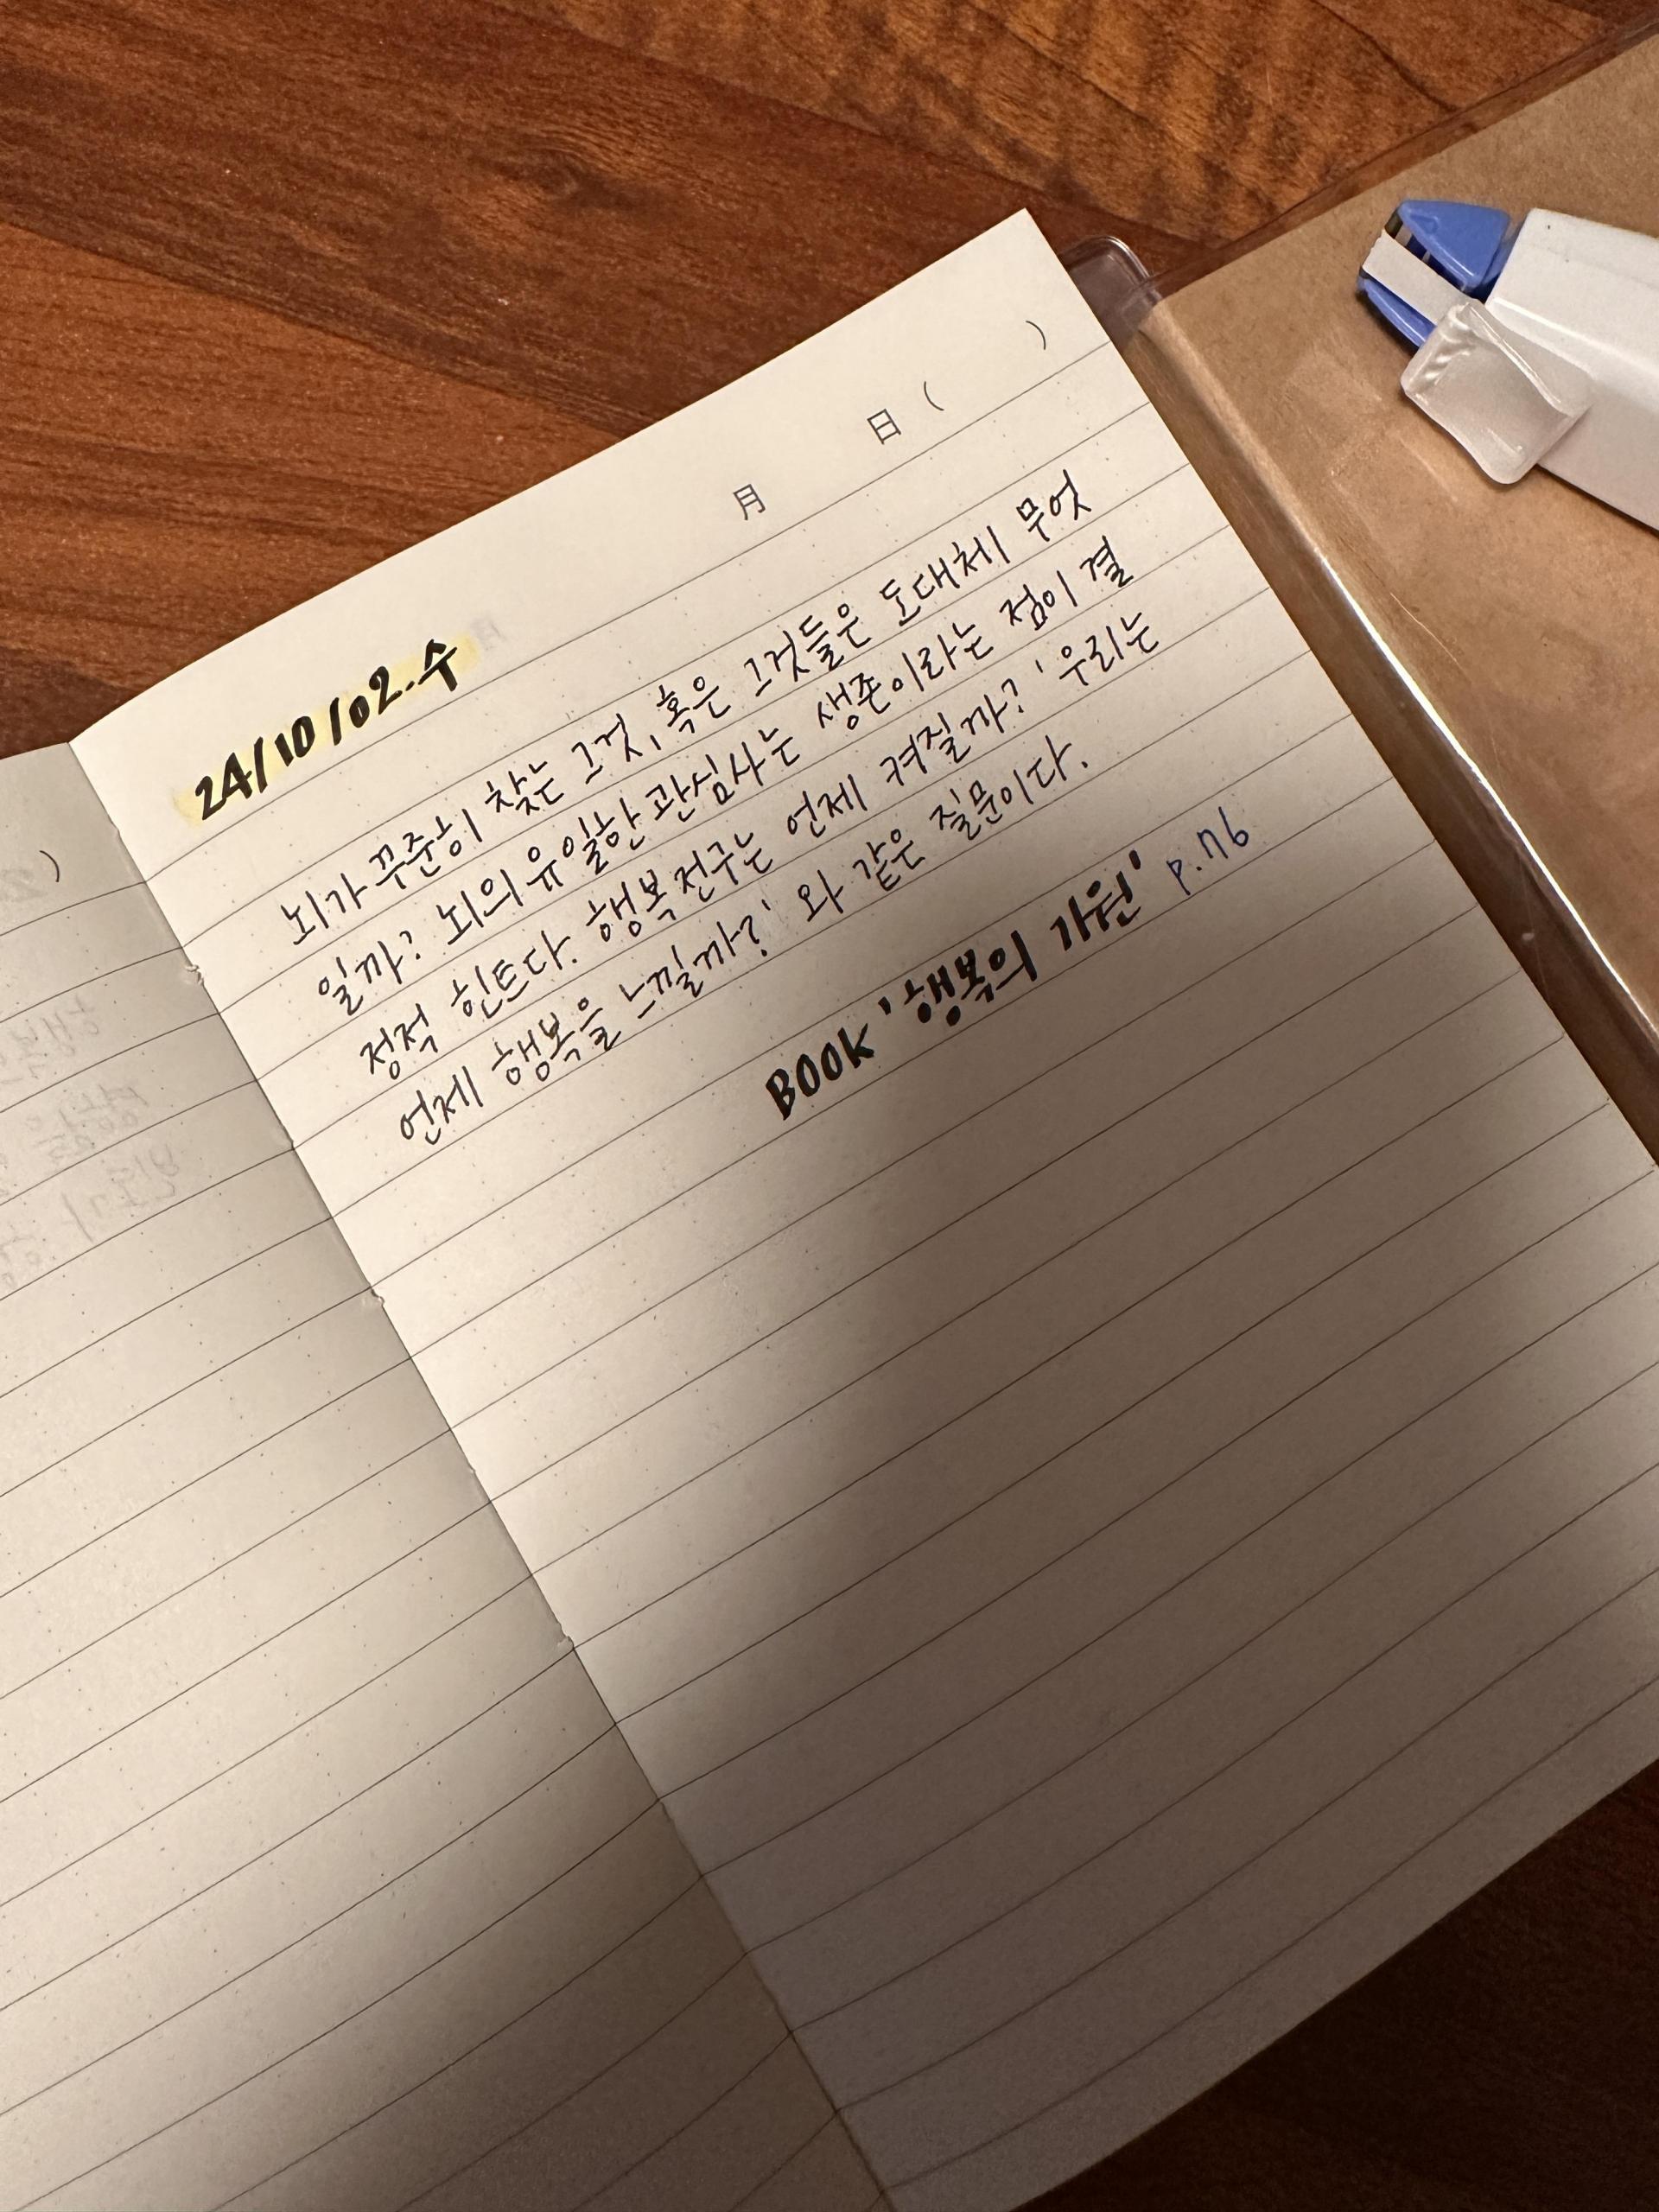 月 日 ( )
24/10/02.수
뇌가 꾸준히 찾는 그것, 혹은 그것들은 도대체 무엇
일까? 뇌의 유일한 관심사는 생존이라는 점이 결
정적 힌트다. 행복전구는 언제 켜질까? '우리는
언제 행복을 느낄까?' 와 같은 질문이다.
BOOK '행복의 기원' p.76
)